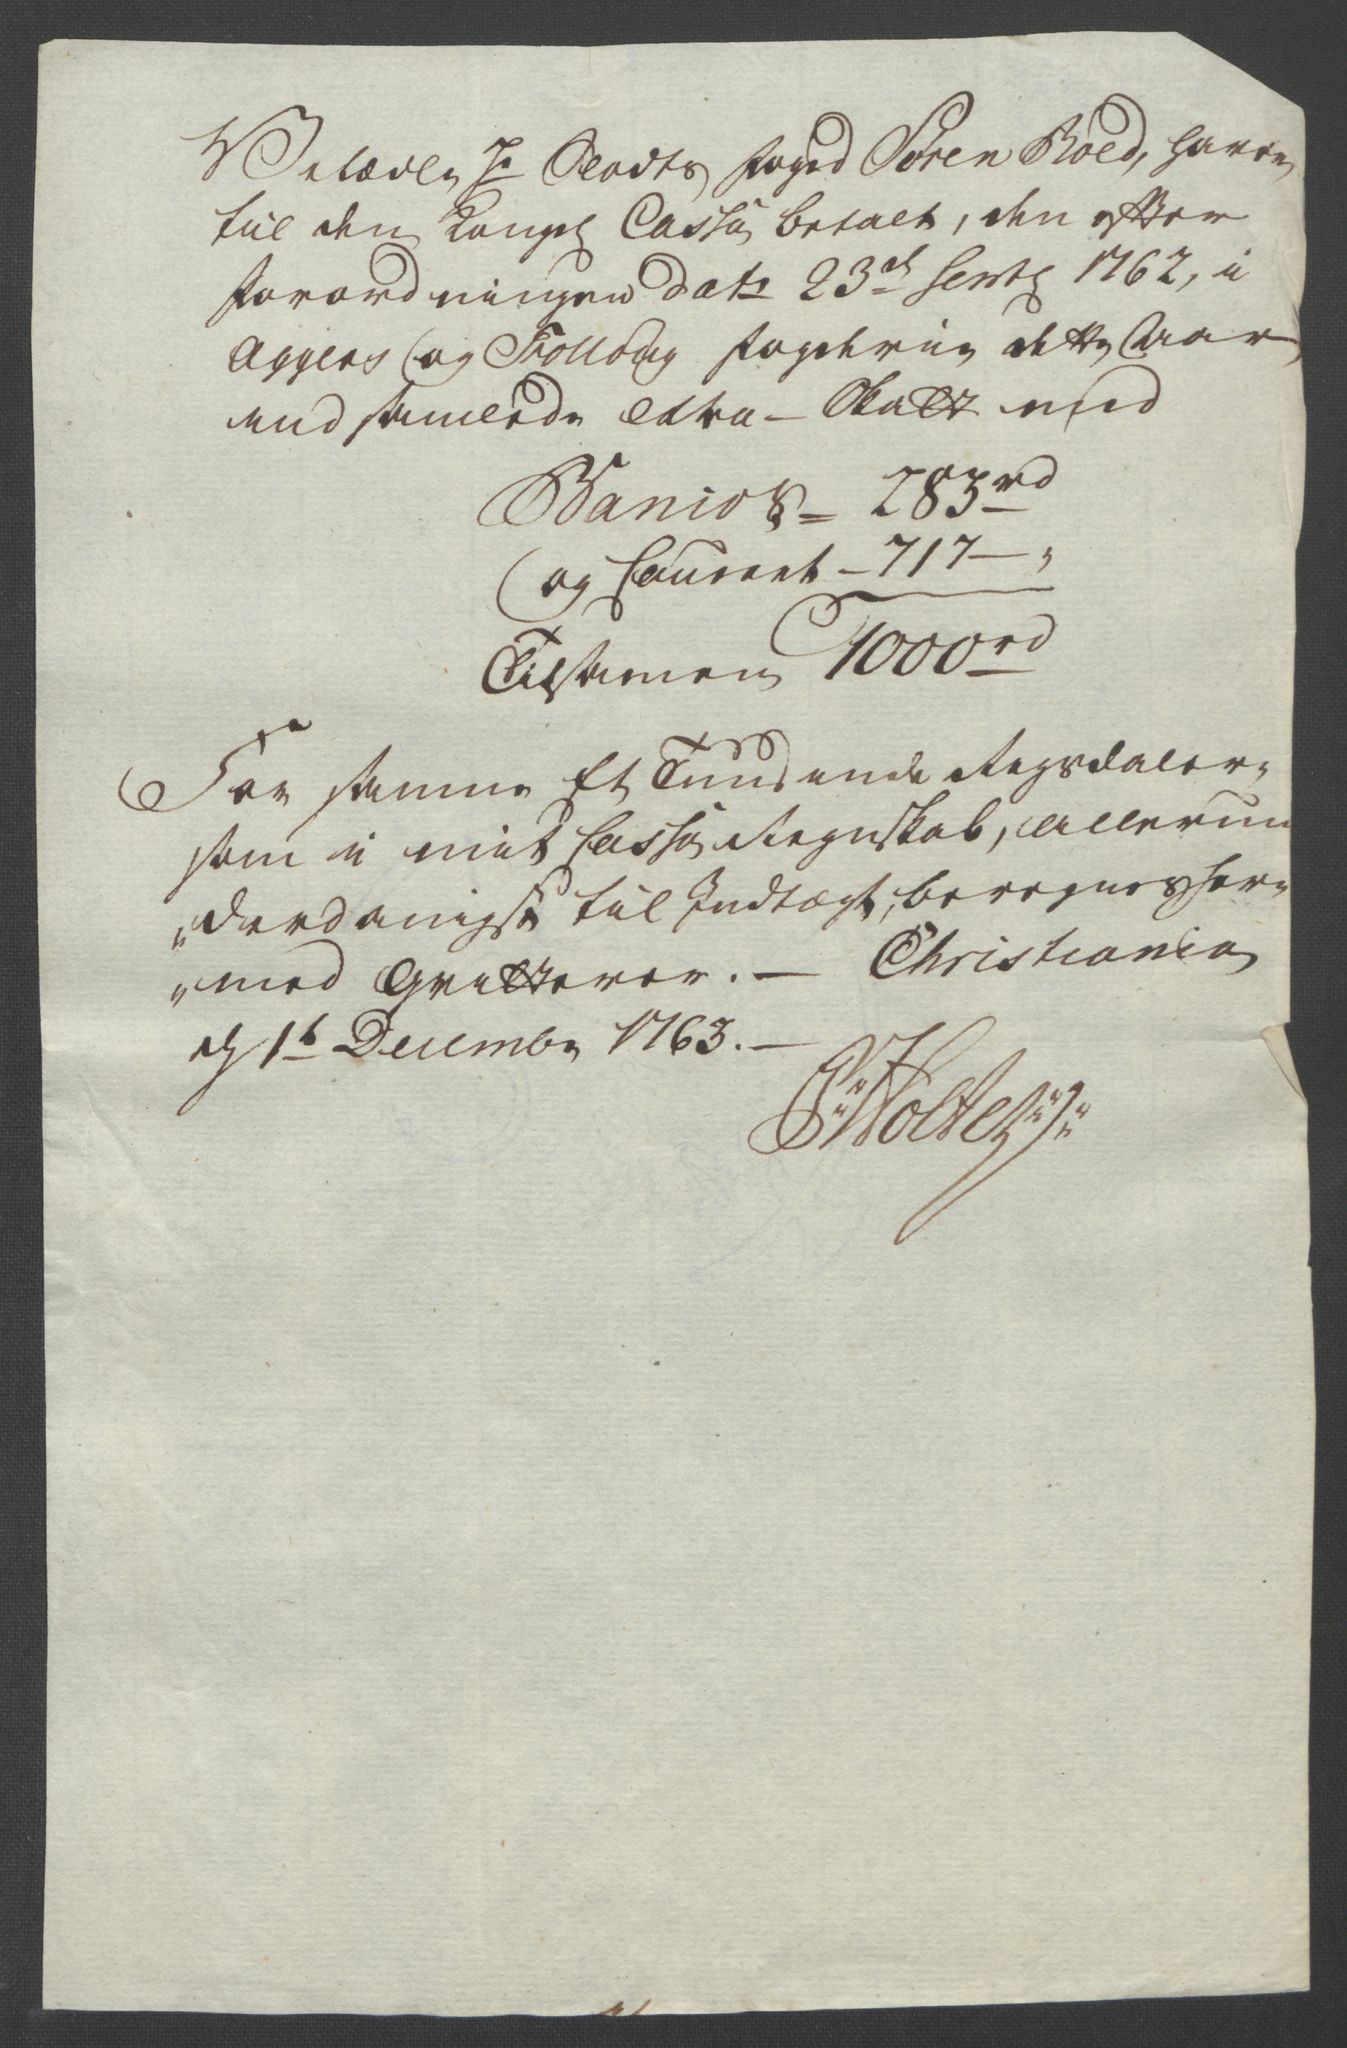 Velædle Hr Slodts foged Søren Roed, haver
til den Kongel Cassa betalt, den efter
forordningen dat: 23de Septb 1762, i
Aggers og Follow fogderie dette Aar
ind samlede Extra- Skatt med
Banios = 283 rd
og Courant - 717 - "
Tilsamen 1000 rd
For samme Et Tuusende Regsdaler
som i mit Cassa Regnskab, allerun
"derdanigst til Indtægt beregnes, her-
"med Qvitterer. - Christiania
d 1t Decembr 1763. -
P: Holter